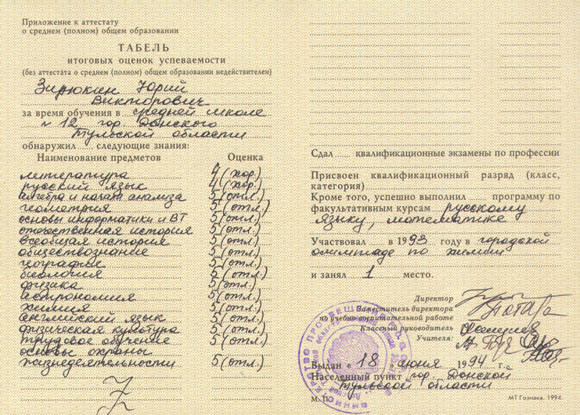 Приложение к аттестату
о среднем (полном) общем образовании
ТАБЕЛЬ
итоговых оценок успеваемости
(без аттестата о среднем (полном) общем образовании недействителен)
Зирюкин Юрий
Викторович
за время обучения в средней школе
№ 12 гор. Донского
Тульской области
обнаружил следующие знания:
Наименование предметов Оценка
литература 4 (хор.)
русский язык 4 (хор.)
алгебра и начала анализа 5 (отл.)
геометрия 5 (отл.)
основы информатики и ВТ 5 (отл.)
отечественная история 5 (отл.)
всеобщая история 5 (отл.)
обществознание 5 (отл.)
география 5 (отл.)
биология 5 (отл.)
физика 5 (отл.)
астрономия 5 (отл.)
химия 5 (отл.)
английский язык 5 (отл.)
физическая культура 5 (отл.)
трудовое обучение 5 (отл.)
основы охраны
жизнедеятельности 5 (отл.)
Сдал квалификационные экзамены по профессии
Присвоен квалификационный разряд (класс,
категория)
Кроме того, успешно выполнил программу по
факультативным курсам русскому
языку, математике
Участвовал в 1993 году в городской
олимпиаде по химии
и занял 1 место.
Директор
Заместитель директора
по учебно-воспитательной работе
Классный руководитель
Учителя:
Выдан „ 18 " июня 1994 г.
Населенный пункт гор. Донской
Тульской области
М. П.
МТ Гознака. 1994.